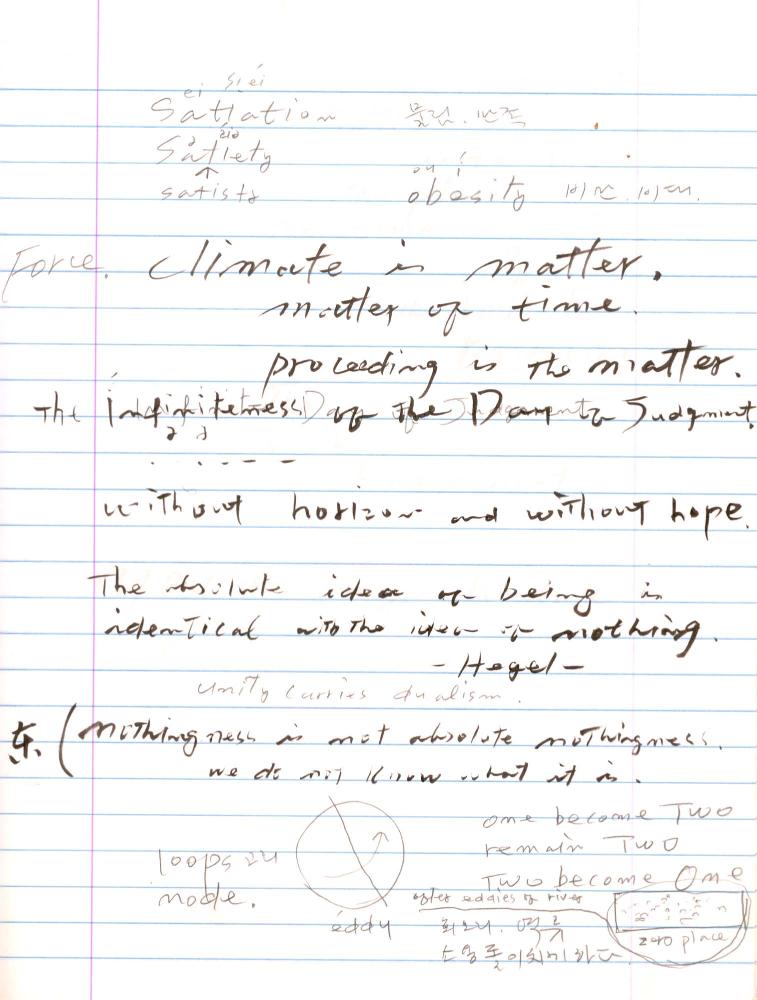 ei si éi
Satiation 물림. 만족
ə áiə
Satiety
ou í
satisfy obesity 비만. 비대.
Force. Climate is matter.
matter of time.
proceeding is the matter.
The Infiniteness of the Day of Judgment.
without horizon and without hope.
The absolute idea of being is
identical with the idea of nothing.
- Hegel -
Unity carries dualism.
东 ( Nothingness is not absolute nothingness.
we do not know what it is.
one become Two
remain Two
loops
node.
Two become One
after eddies of river
eddy 회오리. 역류
zero place
소용돌이치게 하다